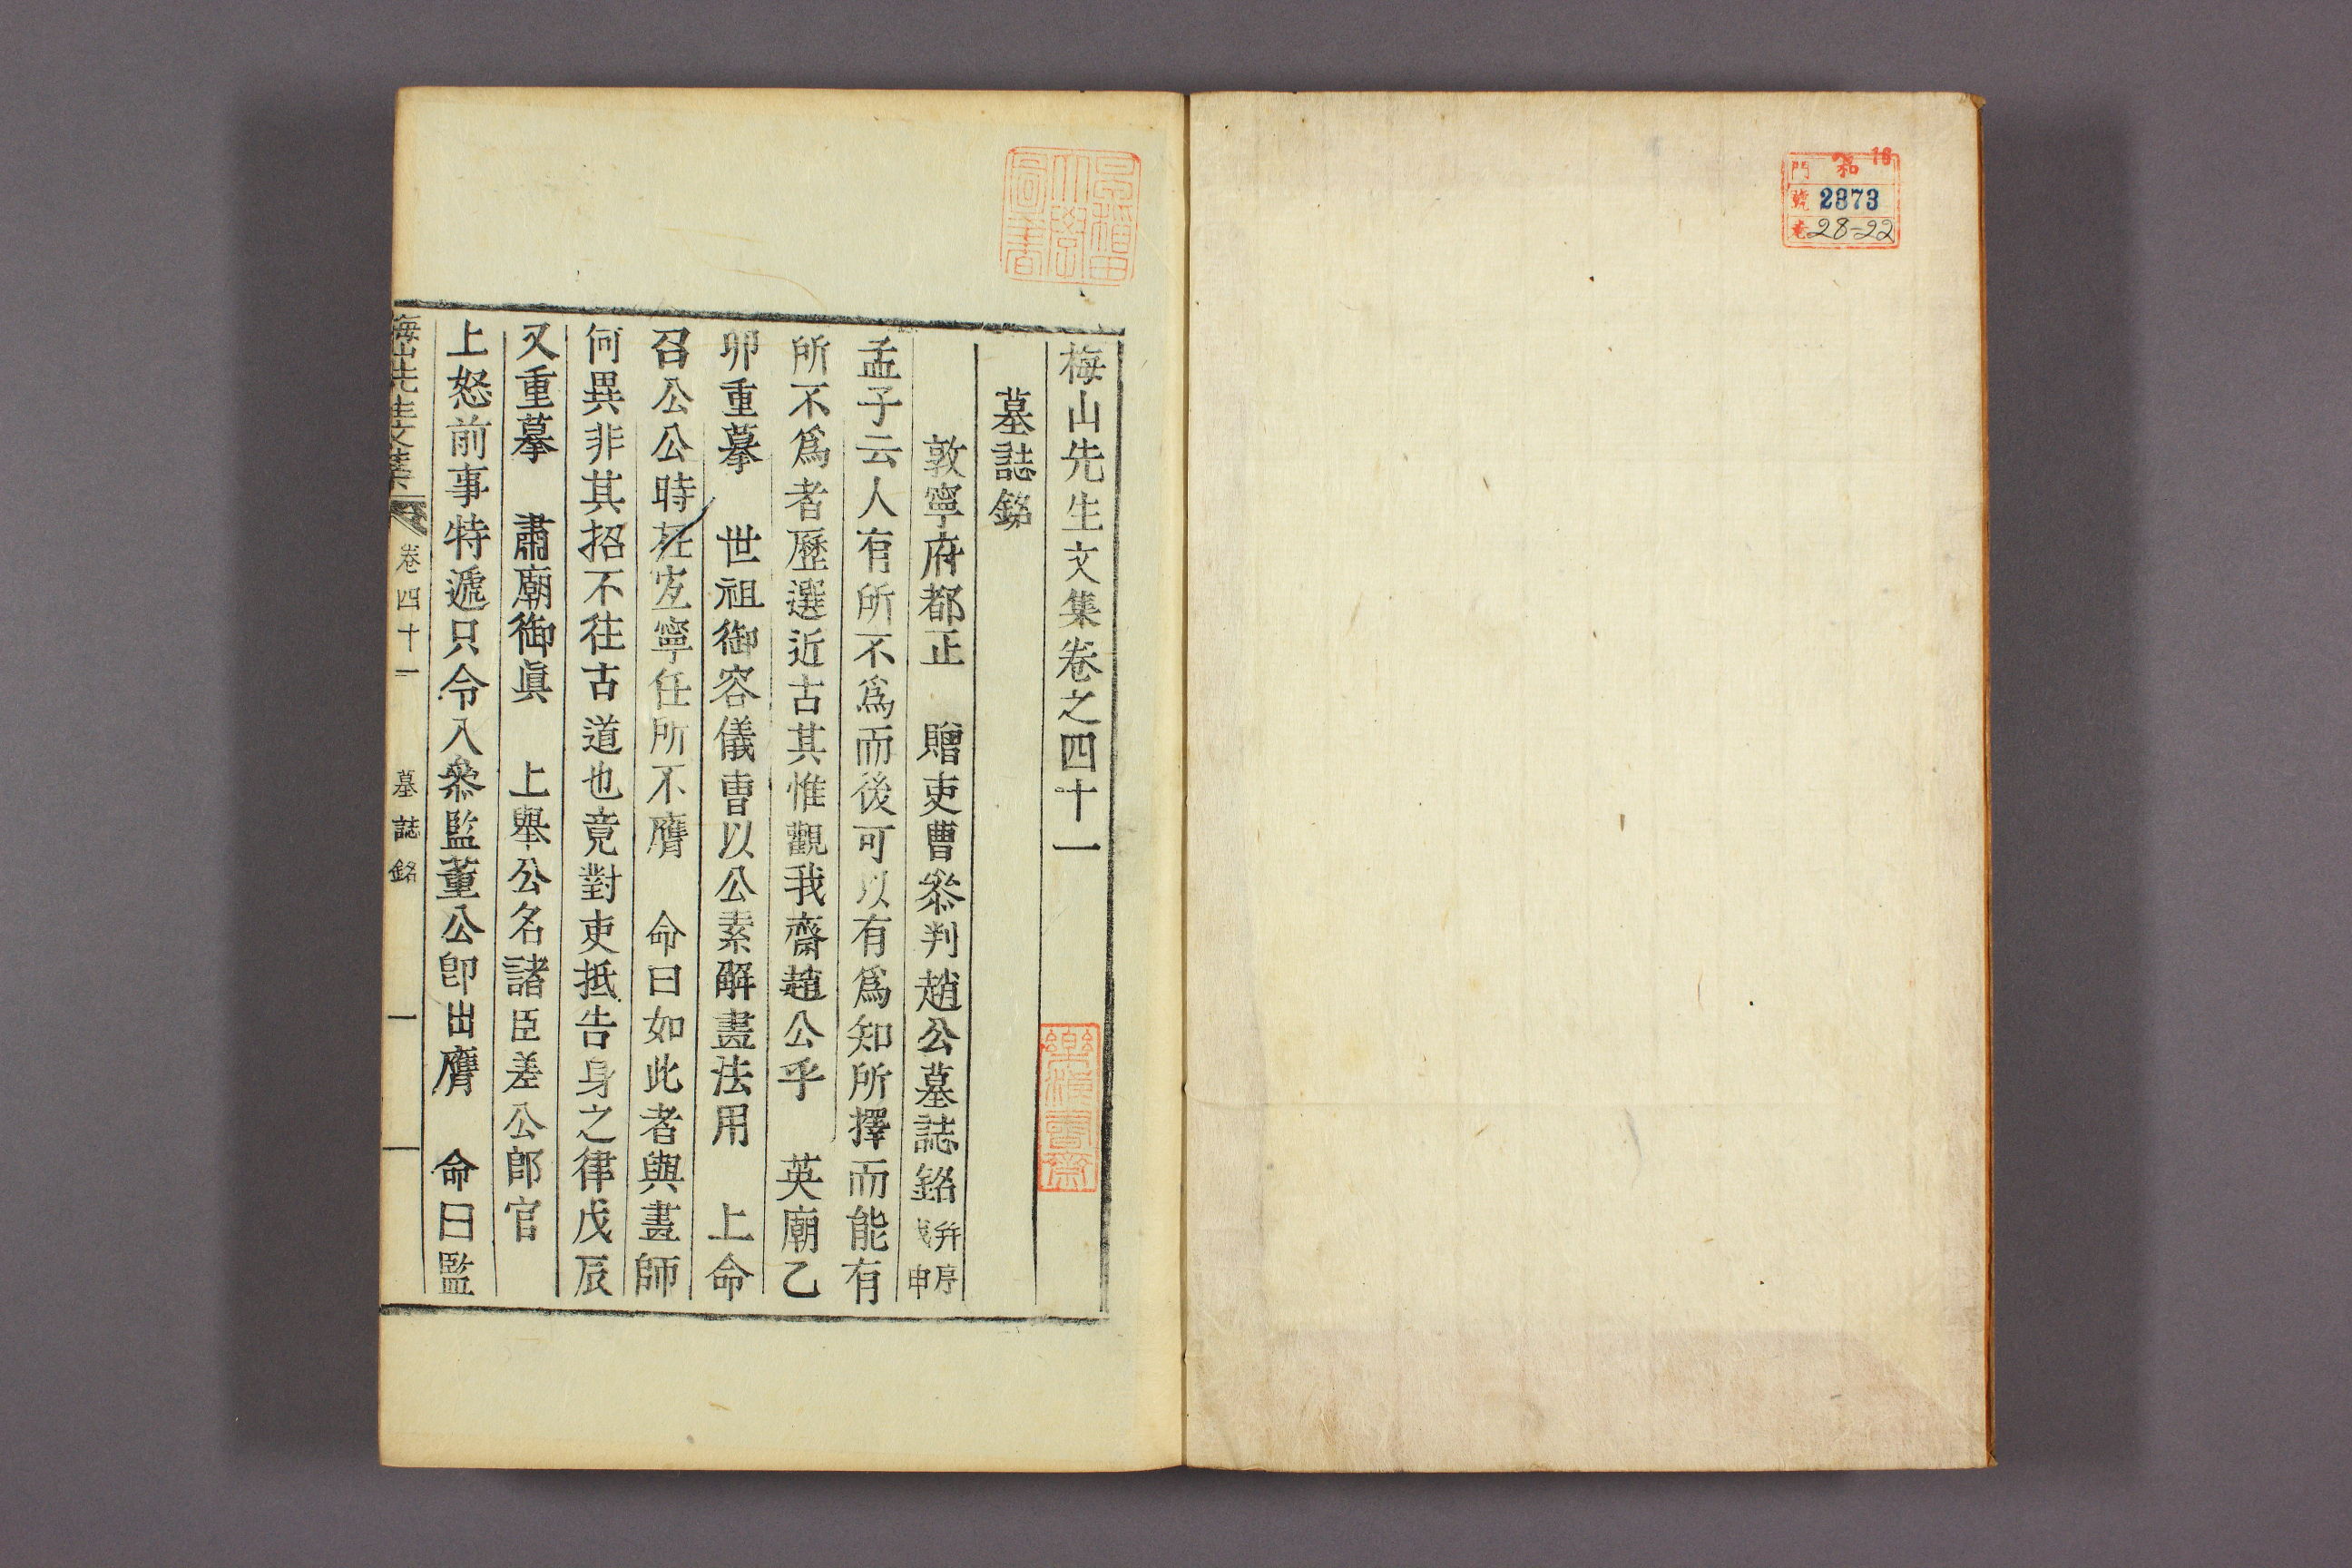 16
門 和
號 2873
卷 28-22
梅山先生文集卷之四十一
墓誌銘
敦寧府都正 贈吏曹叅判趙公墓誌銘 幷序 戊申
孟子云人有所不爲而後可以有爲知所擇而能有
所不爲者歷選近古其惟觀我齋趙公乎 英廟乙
卯重摹 世祖御容儀曺以公素解畫法用 上命
召公公時在宜寧任所不膺 命曰如此者與畫師
何異非其招不往古道也竟對吏抵告身之律戊辰
又重摹 肅廟御眞 上舉公名諸臣差公郎官
上怒前事特遞只令入叅監董公卽出膺 命曰監
梅山先生文集 卷四十一 墓誌銘 一